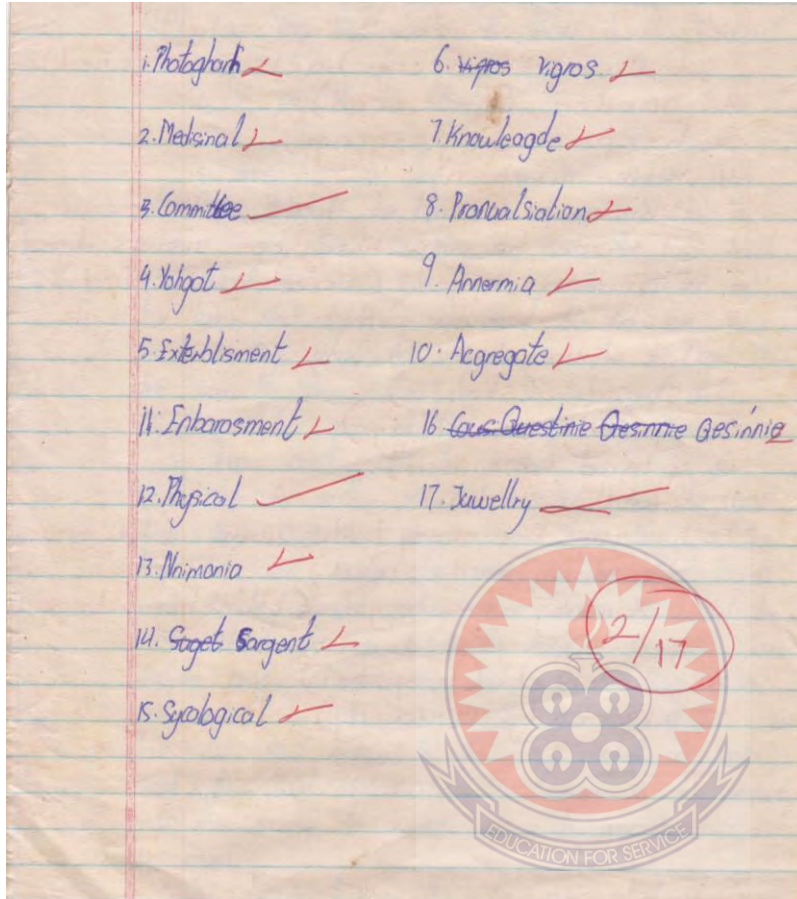 1. Photoghanh
2. Medisinal
3. Committee
4. Yohgot
5. Exterblisment
11. Enbarosment
12. Physical
13. Nnimonia
14. Soget Sargent
15. Sycological
6. Vigros Vigros
7. Knowleagde
8. Pronualsiation
9. Annermia
10. Acgregate
16 Cous Questinie Qesinnie Qesinnie
17. Juwellry
2/17
EDUCATION FOR SERVICE